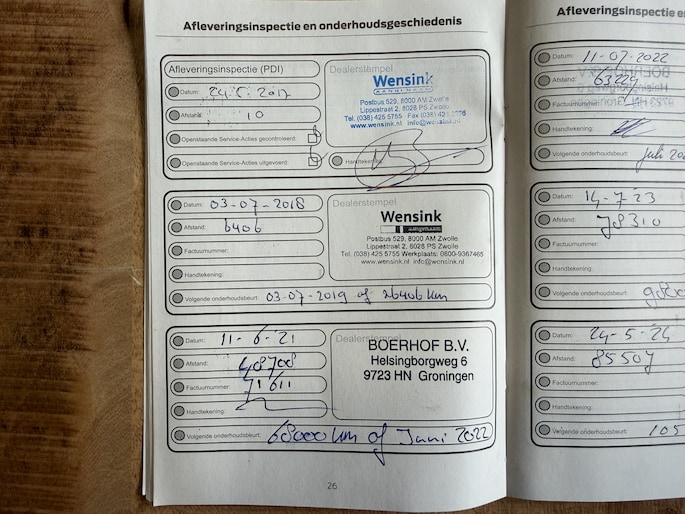 Afleveringsinspectie en onderhoudsgeschiedenis
Afleveringsinspectie (PDI)
Datum:
Afstand: 10
Openstaande Service-Acties gecontroleerd:
Openstaande Service-Acties uitgevoerd:
Dealerstempel
Wensink
Postbus 529, 8000 AM Zwolle
Lippestraat 2, 8028 PS Zwolle
Tel. (038) 425 5755 Fax (038)
www.wensink.nl info@wensink.nl
Handtekening:
Datum: 03-07-2018
Afstand: 6406
Factuurnummer:
Handtekening:
Volgende onderhoudsbeurt: 03-07-2019 of 26406 km
Dealerstempel
Wensink
Postbus 529, 8000 AM Zwolle
Lippestraat 2, 8028 PS Zwolle
Tel. (038) 425 5755 Werkplaats: 0800-9367465
www.wensink.nl info@wensink.nl
Datum: 11-6-21
Afstand: 48708
Factuurnummer: 71611
Handtekening:
Volgende onderhoudsbeurt: 68000 km of Juni 2022
Dealerstempel
BOERHOF B.V.
Helsingborgweg 6
9723 HN Groningen
26
Afleveringsinspectie e
Datum: 11-07-2022
Afstand: 63229
Factuurnummer:
Handtekening:
Volgende onderhoudsbeurt: juli
Datum: 14-7-23
Afstand: 78310
Factuurnummer:
Handtekening:
Volgende onderhoudsbeurt:
Datum: 24-5-24
Afstand: 85507
Factuurnummer:
Handtekening:
Volgende onderhoudsbeurt: 105